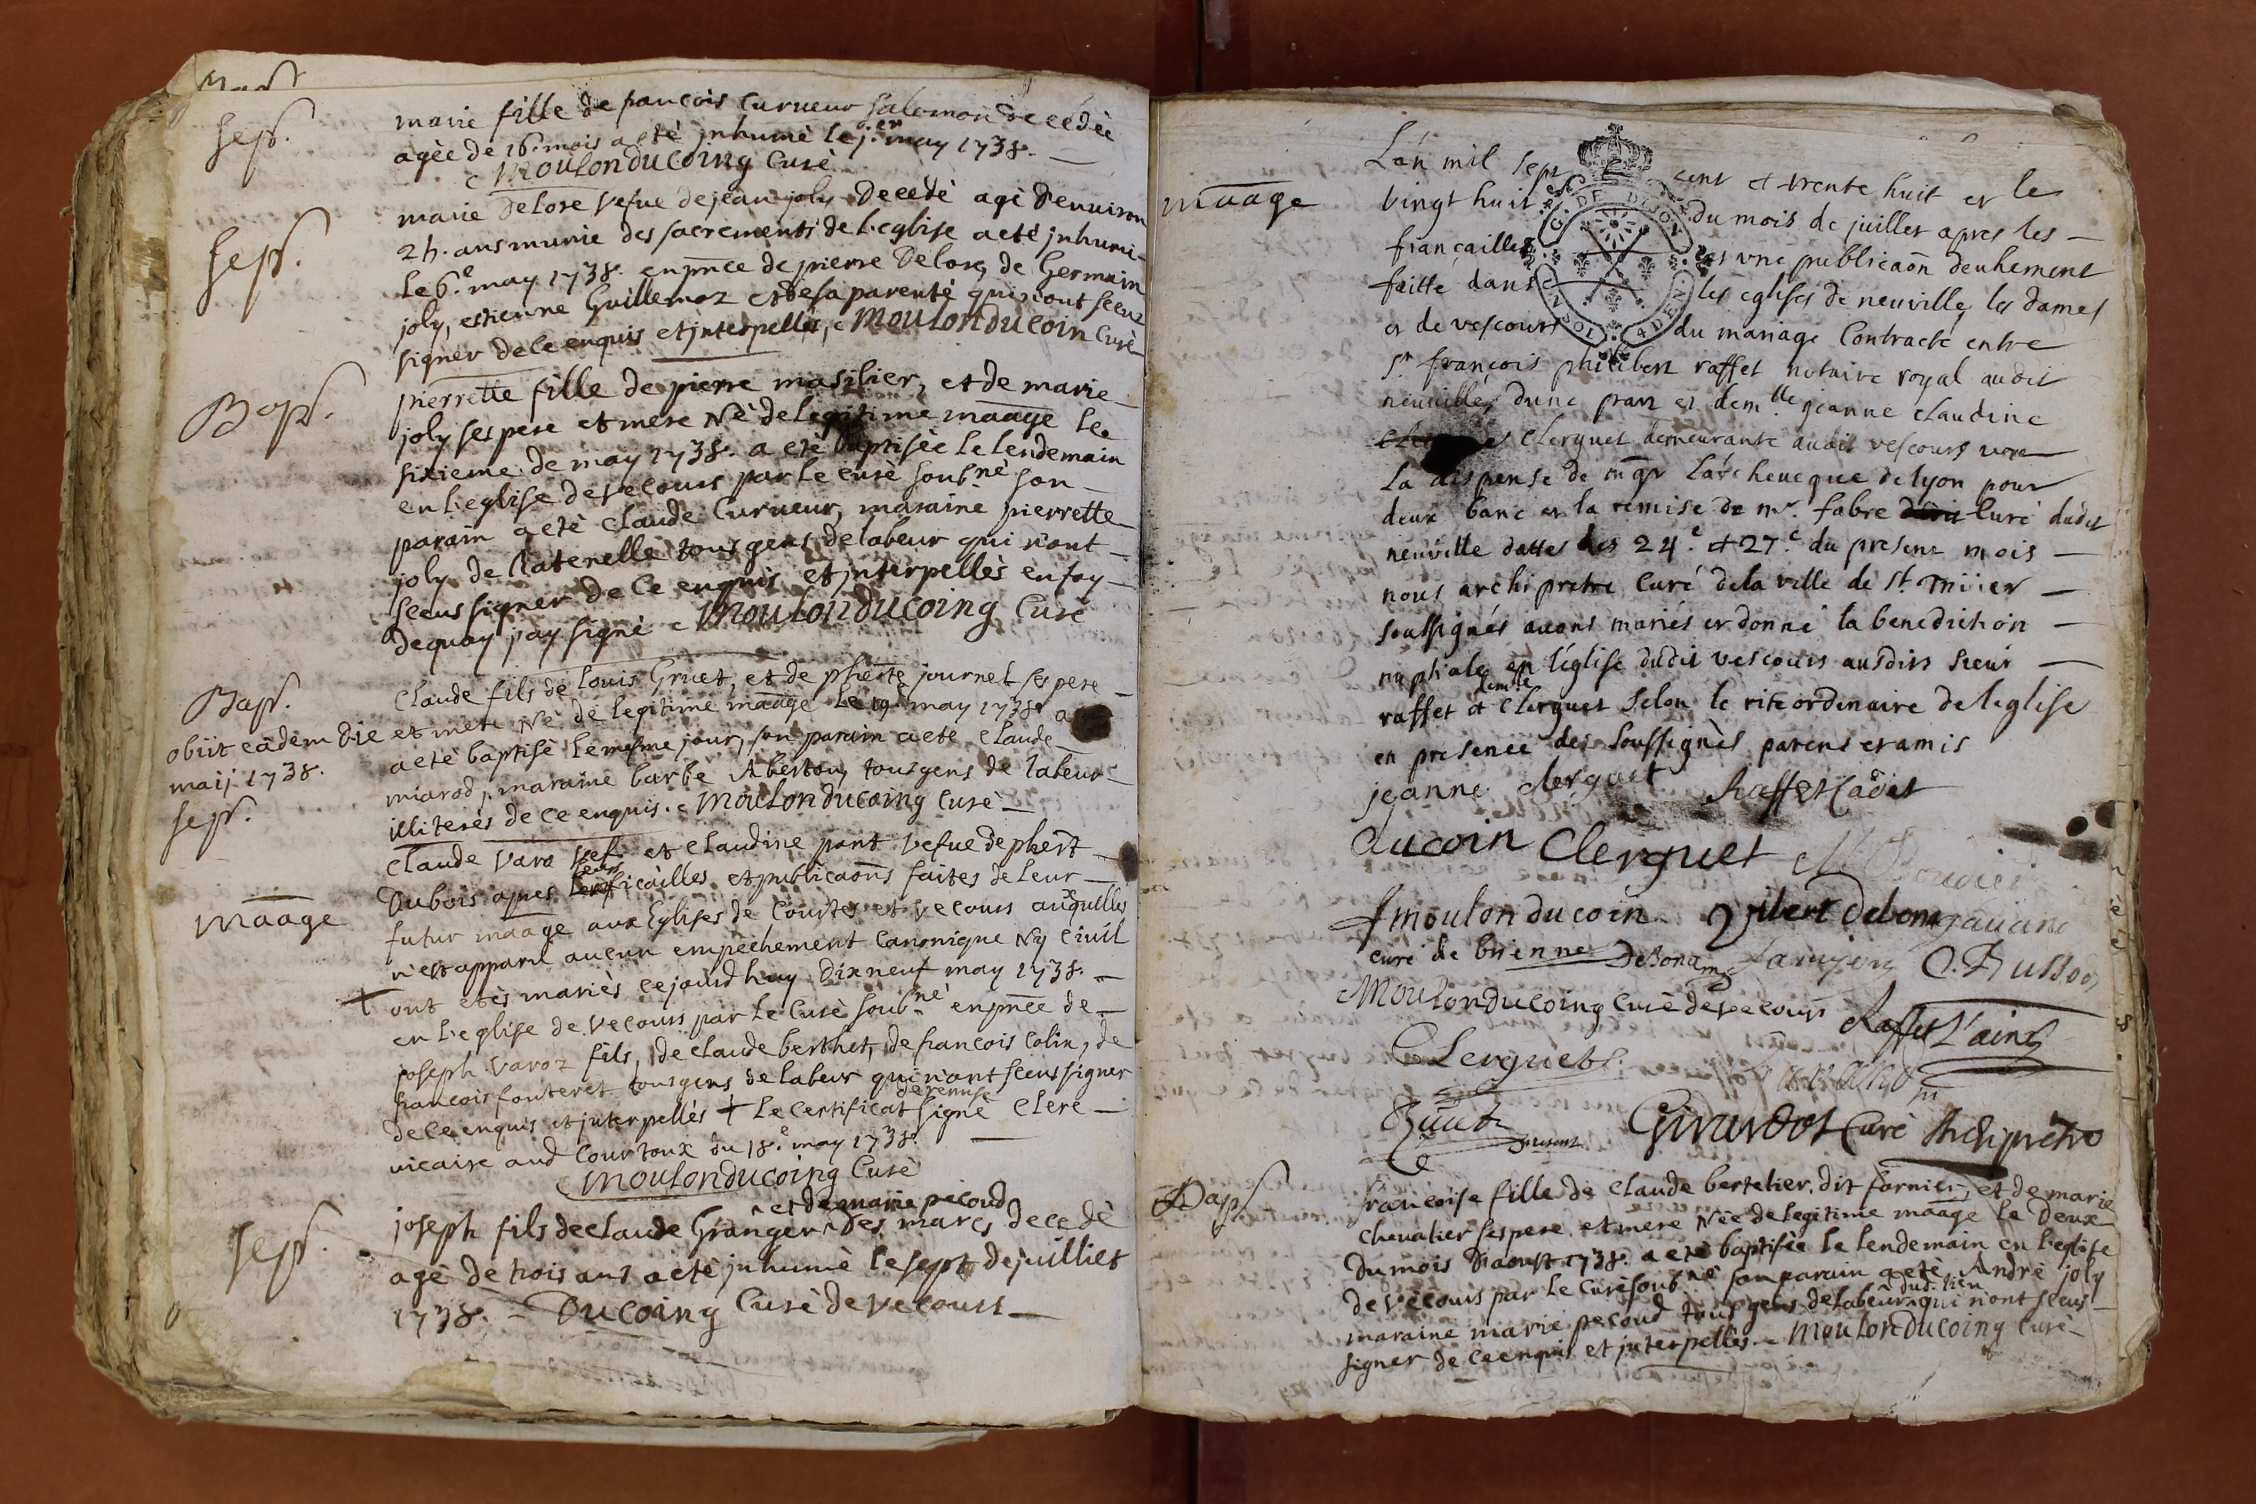 sep.
marie fille de françois Curveur Salomon decedèe
agèe de 16. mois a etè jnhumè le j.er may 1738.
Moulonducoing Curè
sep.
marie Delore vefve de jean joly Decedè agè d'environ
25. ans munie des sacrements de l'eglise a etè jnhumè
le 6.e may 1738. en pñce de pierre Delore, de Germain
joly, estienne Guillemoz et de sa parentè qui n'ont sceuz
signer de ce enquis et jnterpellès, Moulonducoin Curè
Bap.
pierrette fille de pierre masilier, et de marie
joly ses pere et mere Nè de legitime maage le
sixieme de may 1738. a etè baptisèe le lendemain
en l'eglise de vecours par le curè soub.nè son
parain a etè Claude Curveur, maraine pierrette
joly de latenelle tous gens de labeur qui n'ont
sceus signer de ce enquis et jnterpellès en foy
de quoy j'ay signè Moulonducoing Curè
Bap.
obiit eâdem die
maij 1738.
sep.
Claude fils de Louis Gruet, et de phierte journet ses pere
et mere Nè de legitime maage le 19 may 1738 a
a etè baptisè le mesme jour, son parain a etè Claude
miarod, maraine barbe Aberton, tous gens de labeur
illiterès de ce enquis. Moulonducoing Curè
maage
Claude varo vef et Claudine pont vefve de phert
Dubois apres leurs ficailles et publicaoñs faites de leur
futur maage aux Eglises de Courtes et vecours auxquelles
n'est apparu aucun empechement canonique Ny Civil
ont etès mariès cejourd'huy Dixneuf may 1738.
en l'eglise de vecours par le Curè soub.nè en pñce de
joseph varoz fils, de Claude berthet, de francois Colin, de
francois fonteret tous gens de labeur qui n'ont sceus signer
de ce enquis et jnterpellès + le Certificat de remise signè Clere
vicaire aud Courtoux du 18.e may 1738.
Moulonducoing Curè
sep.
joseph fils de Claude Granger et de marie pecoud des marcs decedè
agè de trois ans a etè jnhumè le sept de juilliet
1738. Ducoing Curè de vecours
maage
L'an mil sept cent et trente huit et le
vingt huit du mois de juillet apres les
françailles et une publicaoñ deuhement
faitte dans les eglises de neuville les dames
et de vescours du mariage Contracté entre
Sr françois philibert raffet notaire royal audit
neuville, d'une part et dem.lle jeanne claudine
Clerguet demeurante audit vescours veu
La dispense de mgr l'archeveque de lyon pour
deux banc et la remise de mr. fabre Curé dudit
neuville dattes des 24.e et 27.e du present mois
nous archipretre Curé de la ville de St. Trivier
soussignés avons mariés et donné la benediction
nuptiale en l'église dudit vescours ausdits sieur
raffet et demlle Clerguet selon le rite ordinaire de l'eglise
en presence des soussignès parens et amis
jeanne clerguet Raffet Cadet
Ducoin Clerguet
Moulonducoin
curé de brienne Debona
Moulonducoing Curè de vecours Raffet L'ainé
Clerguet
Girardot Curé Archiprètre
Bap
françoise fille de Claude bertelier dit fornier, et de marie
Chevalier ses pere et mere Nèe de legitime maage le Deux
du mois d'aoust 1738. a etè baptisèe le lendemain en l'eglise
de vècours par le Curè soub.nè son parain a etè Andrè joly
maraine marie pecoud tous gens de labeur dud. lieu qui n'ont sceus
signer de ce enquis et jnterpellès. Moulonducoing Curè